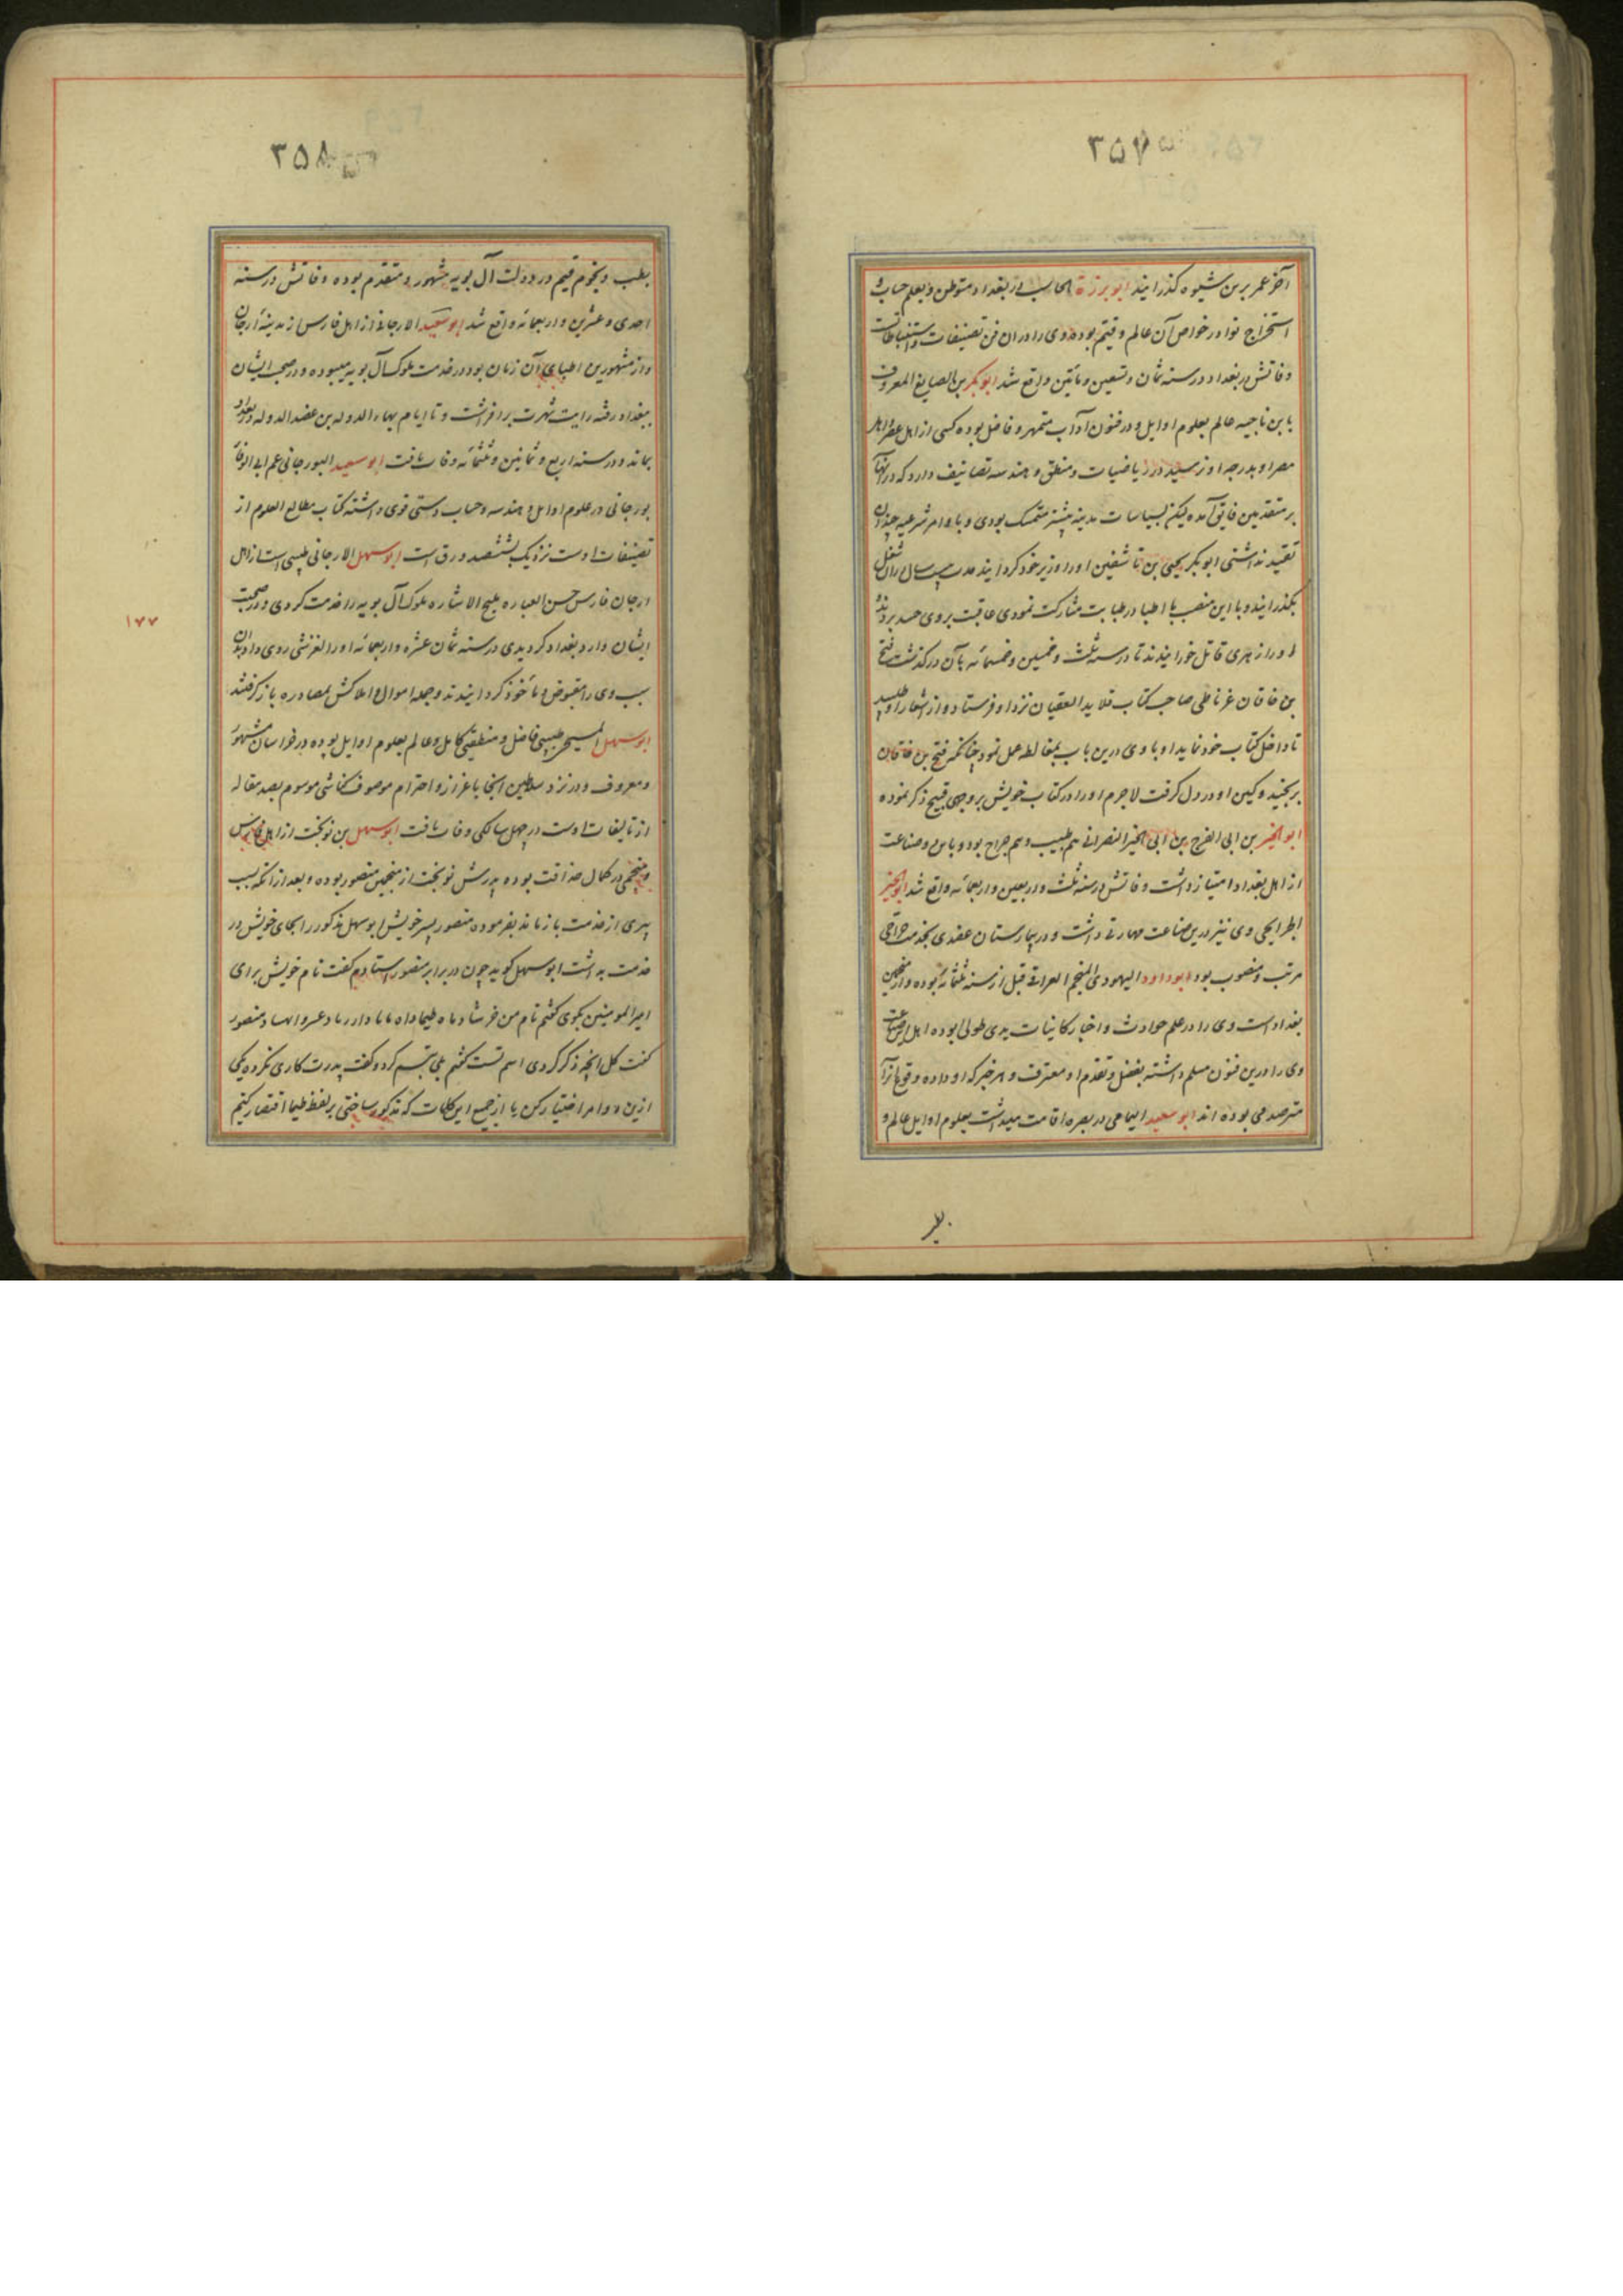 ۳۵۷
آخر عمر برین شیوه کذرانید ابو برزة الحاسب در بغداد متوطن و بعلم حساب و
استخراج نوادر خواص آن عالم و قیم بوده وی را در ان فن تصنیفات و استنباطات
وفاتش در بغداد در سنه ثمان و تسعین و مأتین واقع شد ابو بکر بن الصایغ المعروف
بابن ناجیه عالم بعلوم اوایل و در فنون آداب متمهر و فاضل بوده کسی از اهل عصر از اهل
مصر او بدرجه او نرسید در ریاضیات و منطق و هندسه تصانیف دارد که در انها
بر متقدمین فایق آمده لیکن بسیاسات مدینه بیشتر متمسک بودی و باوامر شرعیه چندان
تقید نداشتی ابو بکر یحیی بن تاشفین او را وزیر خود کردانید مدت بیست سال در ان شغل
بکذرانید و با این منصب با اطبا در طبابت مشارکت نمودی عاقبت بر وی حسد بردند
او را زهری قاتل خورانیدند تا در سنه ثلث و خمسین و خمسمائه بآن درکذشت فتح
بن خاقان غرناطی صاحب کتاب قلاید العقیان نزد او فرستاد و از اشعار او طلبید
تا داخل کتاب خود نماید او با وی درین باب بمغالطه عمل نمود چنانکه فتح بن خاقان
برنجید و کین او در دل کرفت لاجرم او را در کتاب خویش بر وجهی قبیح ذکر نموده
ابو الخیر بن ابی الفرج بن ابی الخیر النصرانی هم طبیب و هم جراح بود و باین دو صناعت
از اهل بغداد امتیاز داشت وفاتش در سنه ثلث و اربعین و اربعمائه واقع شد ابو الخیر
الجرایحی وی نیز درین صناعت مهارتی داشت و در بیمارستان عضدی بخدمت جراحی
مرتب و منصوب بود ابو داود الیهودی المنجم العراقی قبل از سنه ثلثمائه بوده و از منجمین
بغداد است وی را در علم حوادث و اخبار کاینات یدی طولی بوده اهل این صناعت
وی را درین فنون مسلم داشته بفضل و تقدم او معترف و هر خبر که او داده وقوع انرا
مترصد می بوده اند ابو سعید الیمامی در بصره اقامت میداشت بعلوم اوایل عالم و
بطب
۳۵۸
بطب و نجوم قیم در دولت آل بویه مشهور و متقدم بوده وفاتش در سنه
احدی و عشرین و اربعمائه واقع شد ابو سعید الارجانی از اهل فارس از مدینه ارجان
و از مشهورین اطبای آن زمان بود در خدمت ملوک آل بویه میبوده و در صحبت ایشان
ببغداد رفته رایت شهرت برافراشت و تا ایام بهاء الدوله بن عضد الدوله در بغداد
بماند و در سنه اربع و ثمانین و ثلثمائه وفات یافت ابو سعید البورجانی عم ابی الوفاء
بورجانی در علوم اوایل و هندسه و حساب دستی قوی داشته کتاب مطالع العلوم از
تصنیفات اوست نزدیک بششصد ورق است ابو سهل الارجانی طبیبی است از اهل
ارجان فارس حسن العباره ملیح الاشاره ملوک آل بویه را خدمت کردی و در صحبت
ایشان وارد بغداد کردیدی در سنه ثمان عشره و اربعمائه او را لغزشی روی داد بدان
سبب وی را مقبوض و مأخوذ کردانیدند و جمله اموال و املاکش بمصادره باز کرفتند
ابو سهل المسیحی طبیبی فاضل و منطقیی کامل و عالم بعلوم اوایل بوده در خراسان مشهور
و معروف و در نزد سلاطین انجا باعزاز و احترام موصوف کناشی موسوم بصد مقاله
از تالیفات اوست در چهل سالکی وفات یافت ابو سهل بن نوبخت از اهل فارس
و منجمی در کمال حذاقت بوده پدرش نوبخت از منجمین منصور بوده و بعد از انکه بسبب
پیری از خدمت باز ماند بفرموده منصور پسر خویش ابو سهل مذکور را بجای خویش در
خدمت بداشت ابو سهل کوید چون در برابر منصور استادم کفت نام خویش برای
امیر المومنین بکوی کفتم نام من خرشاد ماه طیماداه مابادار باد خسروا نهشاد منصور
کفت کل انچه ذکر کردی اسم تست کفتم بلی تبسم کرد و کفت پدرت کاری نکرده یکی
ازین دو امر اختیار کن یا از جمیع این کلمات که مذکور ساختی بر لفظ طیما اقتصار کنیم
۱۷۷